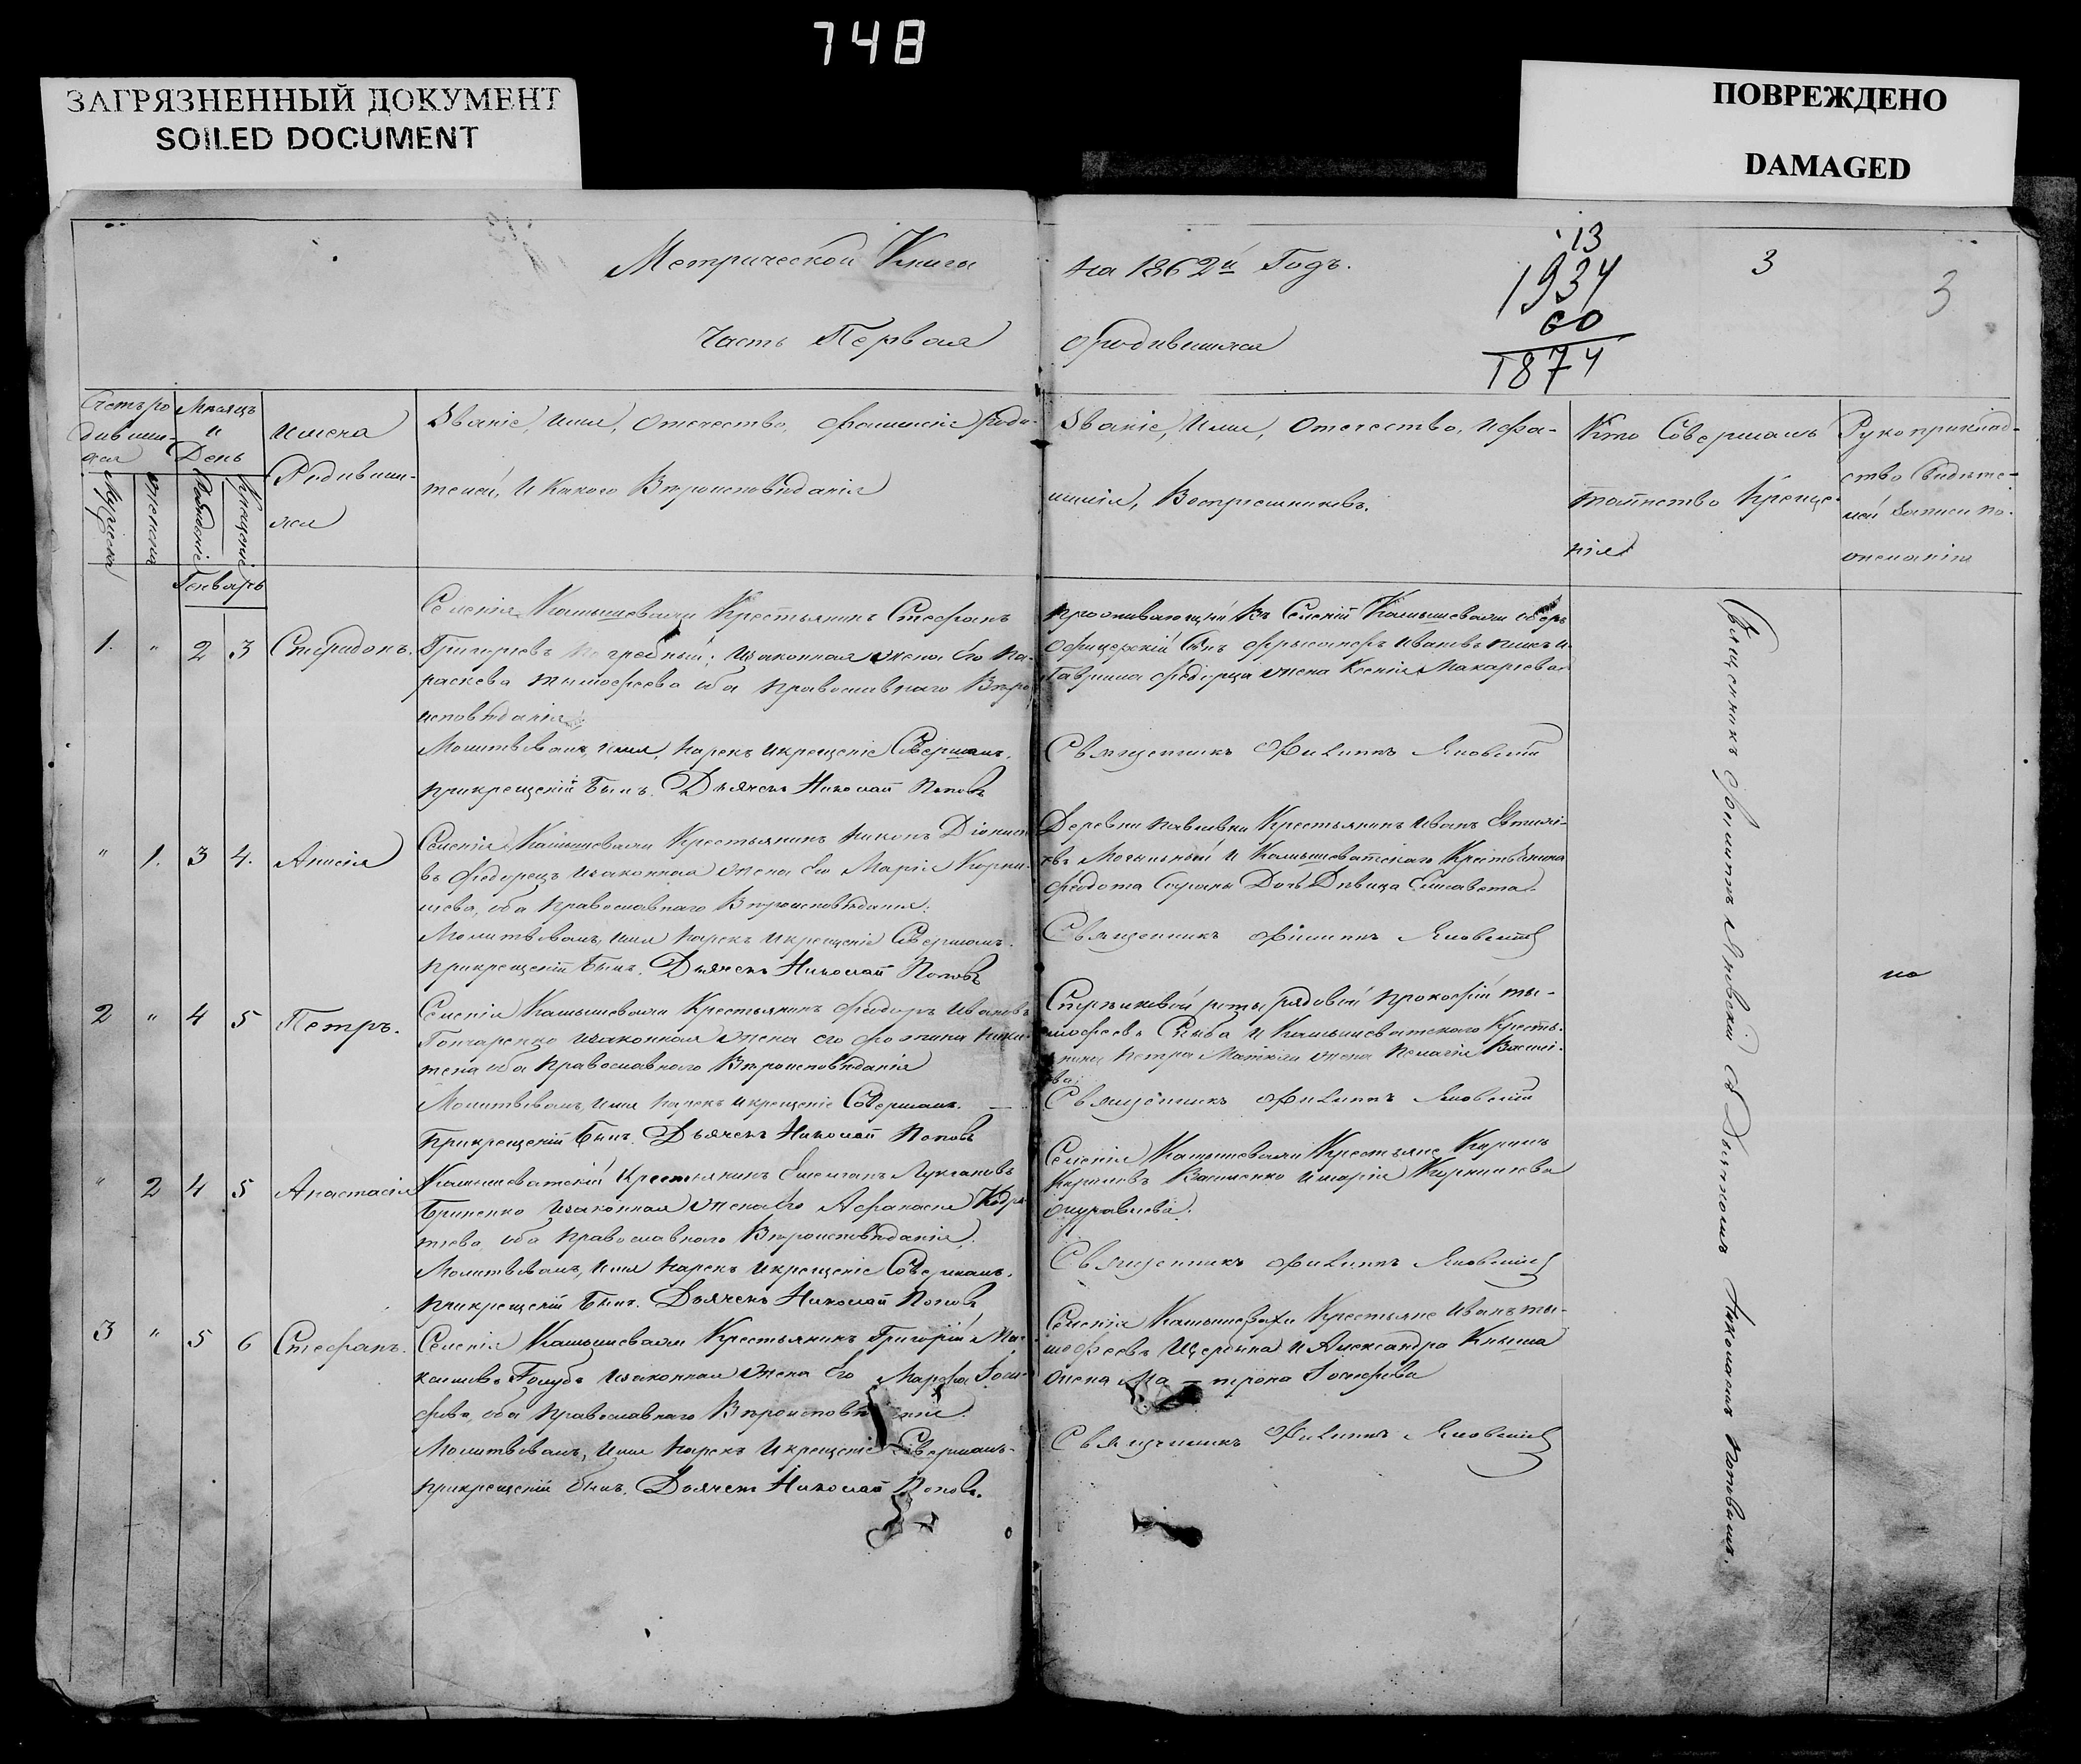 748
ЗАГРЯЗНЕННЫЙ ДОКУМЕНТ
SOILED DOCUMENT
ПОВРЕЖДЕНО
DAMAGED
Метрической Книги
на 1862й Годъ.
Часть Первая
о родившихся
13
1934
60
1874
3
3
Счетъ ро
дивших-
ся
Мужеска
Женска
Мѣсяцъ
и
День
Рожденіе
Крещеніе
Имена
Родивших-
ся
Званіе, Имя, Отечество, Фамилія Роди-
телей, И Какого Вѣроисповѣданія
Званіе, Имя, Отечество, И Фа-
милія, Воспріемниковъ.
Кто Совершалъ
таинство Креще-
нія
Рукоприклад-
ство Свидѣте-
лей Записи по
желанію
Генварь
1. " 2 3 Спиридонъ.
Селенія Камышевахи Крестьянинъ Стефанъ
Григорьевъ и законная жена Его Па-
раскева Тимофеева оба Православнаго Вѣро
исповѣданія
Молитвовалъ, имя, нарекъ и крещеніе Совершалъ.
При крещеніи Былъ. Дьячекъ Николай Поповъ
Проживающій въ Селеніи Камышевахи оберъ
Офицерскій Сынъ Ивановъ и
Гавриила Федорца жена Ксенія Макарьева
Священникъ Филиппъ Яновскій
" 1. 3 4. Анисія
Селенія Камышевахи Крестьянинъ Никонъ Діонисі
въ Федорецъ и законная жена Его Марія Корни-
лева, оба Православнаго Вѣроисповѣданія.
Молитвовалъ, имя нарекъ и крещеніе Совершалъ.
При крещеніи Былъ. Дьячекъ Николай Поповъ
Деревни Павловки Крестьянинъ Иванъ
Могильный И Камышеватскаго Крестьянина
Федота Дочь Дѣвица Елисавета.
Священникъ Филиппъ Яновскій
2 " 4 5 Петръ.
Селенія Камышевахи Крестьянинъ Федоръ Ивановъ
Гончаренко и законная жена его Фотина Ники-
тена оба Православнаго Вѣроисповѣданія
Молитвовалъ, имя нарекъ и крещеніе Совершалъ.
При крещеніи Былъ. Дьячекъ Николай Поповъ
роты рядовой Прокофій Ти-
мофеевъ И Камышеватскаго Кресть-
янина Петра жена Пелагія Василі-
ева.
Священникъ Филиппъ Яновскій
" 2 4 5 Анастасія
Камышеватскій Крестьянинъ Емеліанъ Лукіановъ
и законная жена Его Афанасія Кодра-
тьева оба Православнаго Вѣроисповѣданія.
Молитвовалъ, имя нарекъ и крещеніе Совершалъ.
При крещеніи Былъ. Дьячекъ Николай Поповъ
Селенія Камышевахи Крестьяне Кирилъ
Кириловъ Василенко и Марія Корнилева
Журавлева.
Священникъ Филиппъ Яновскій
3 " 5 6 Стефанъ.
Селенія Камышевахи Крестьянинъ Григорій Ма-
ксимовъ Голубъ и законная жена Его Марфа Іоси-
фова, оба Православнаго Вѣроисповѣданія.
Молитвовалъ, имя нарекъ и крещеніе Совершалъ.
При крещеніи былъ. Дьячекъ Николай Поповъ.
Селенія Камышевахи Крестьяне Иванъ Ти-
мофеевъ Щербина И Александра Книша
жена Ма-трона Іосифова
Священникъ Филиппъ Яновскій
Священникъ Филиппъ Яновскій съ Дьячкомъ Николаемъ Поповымъ.